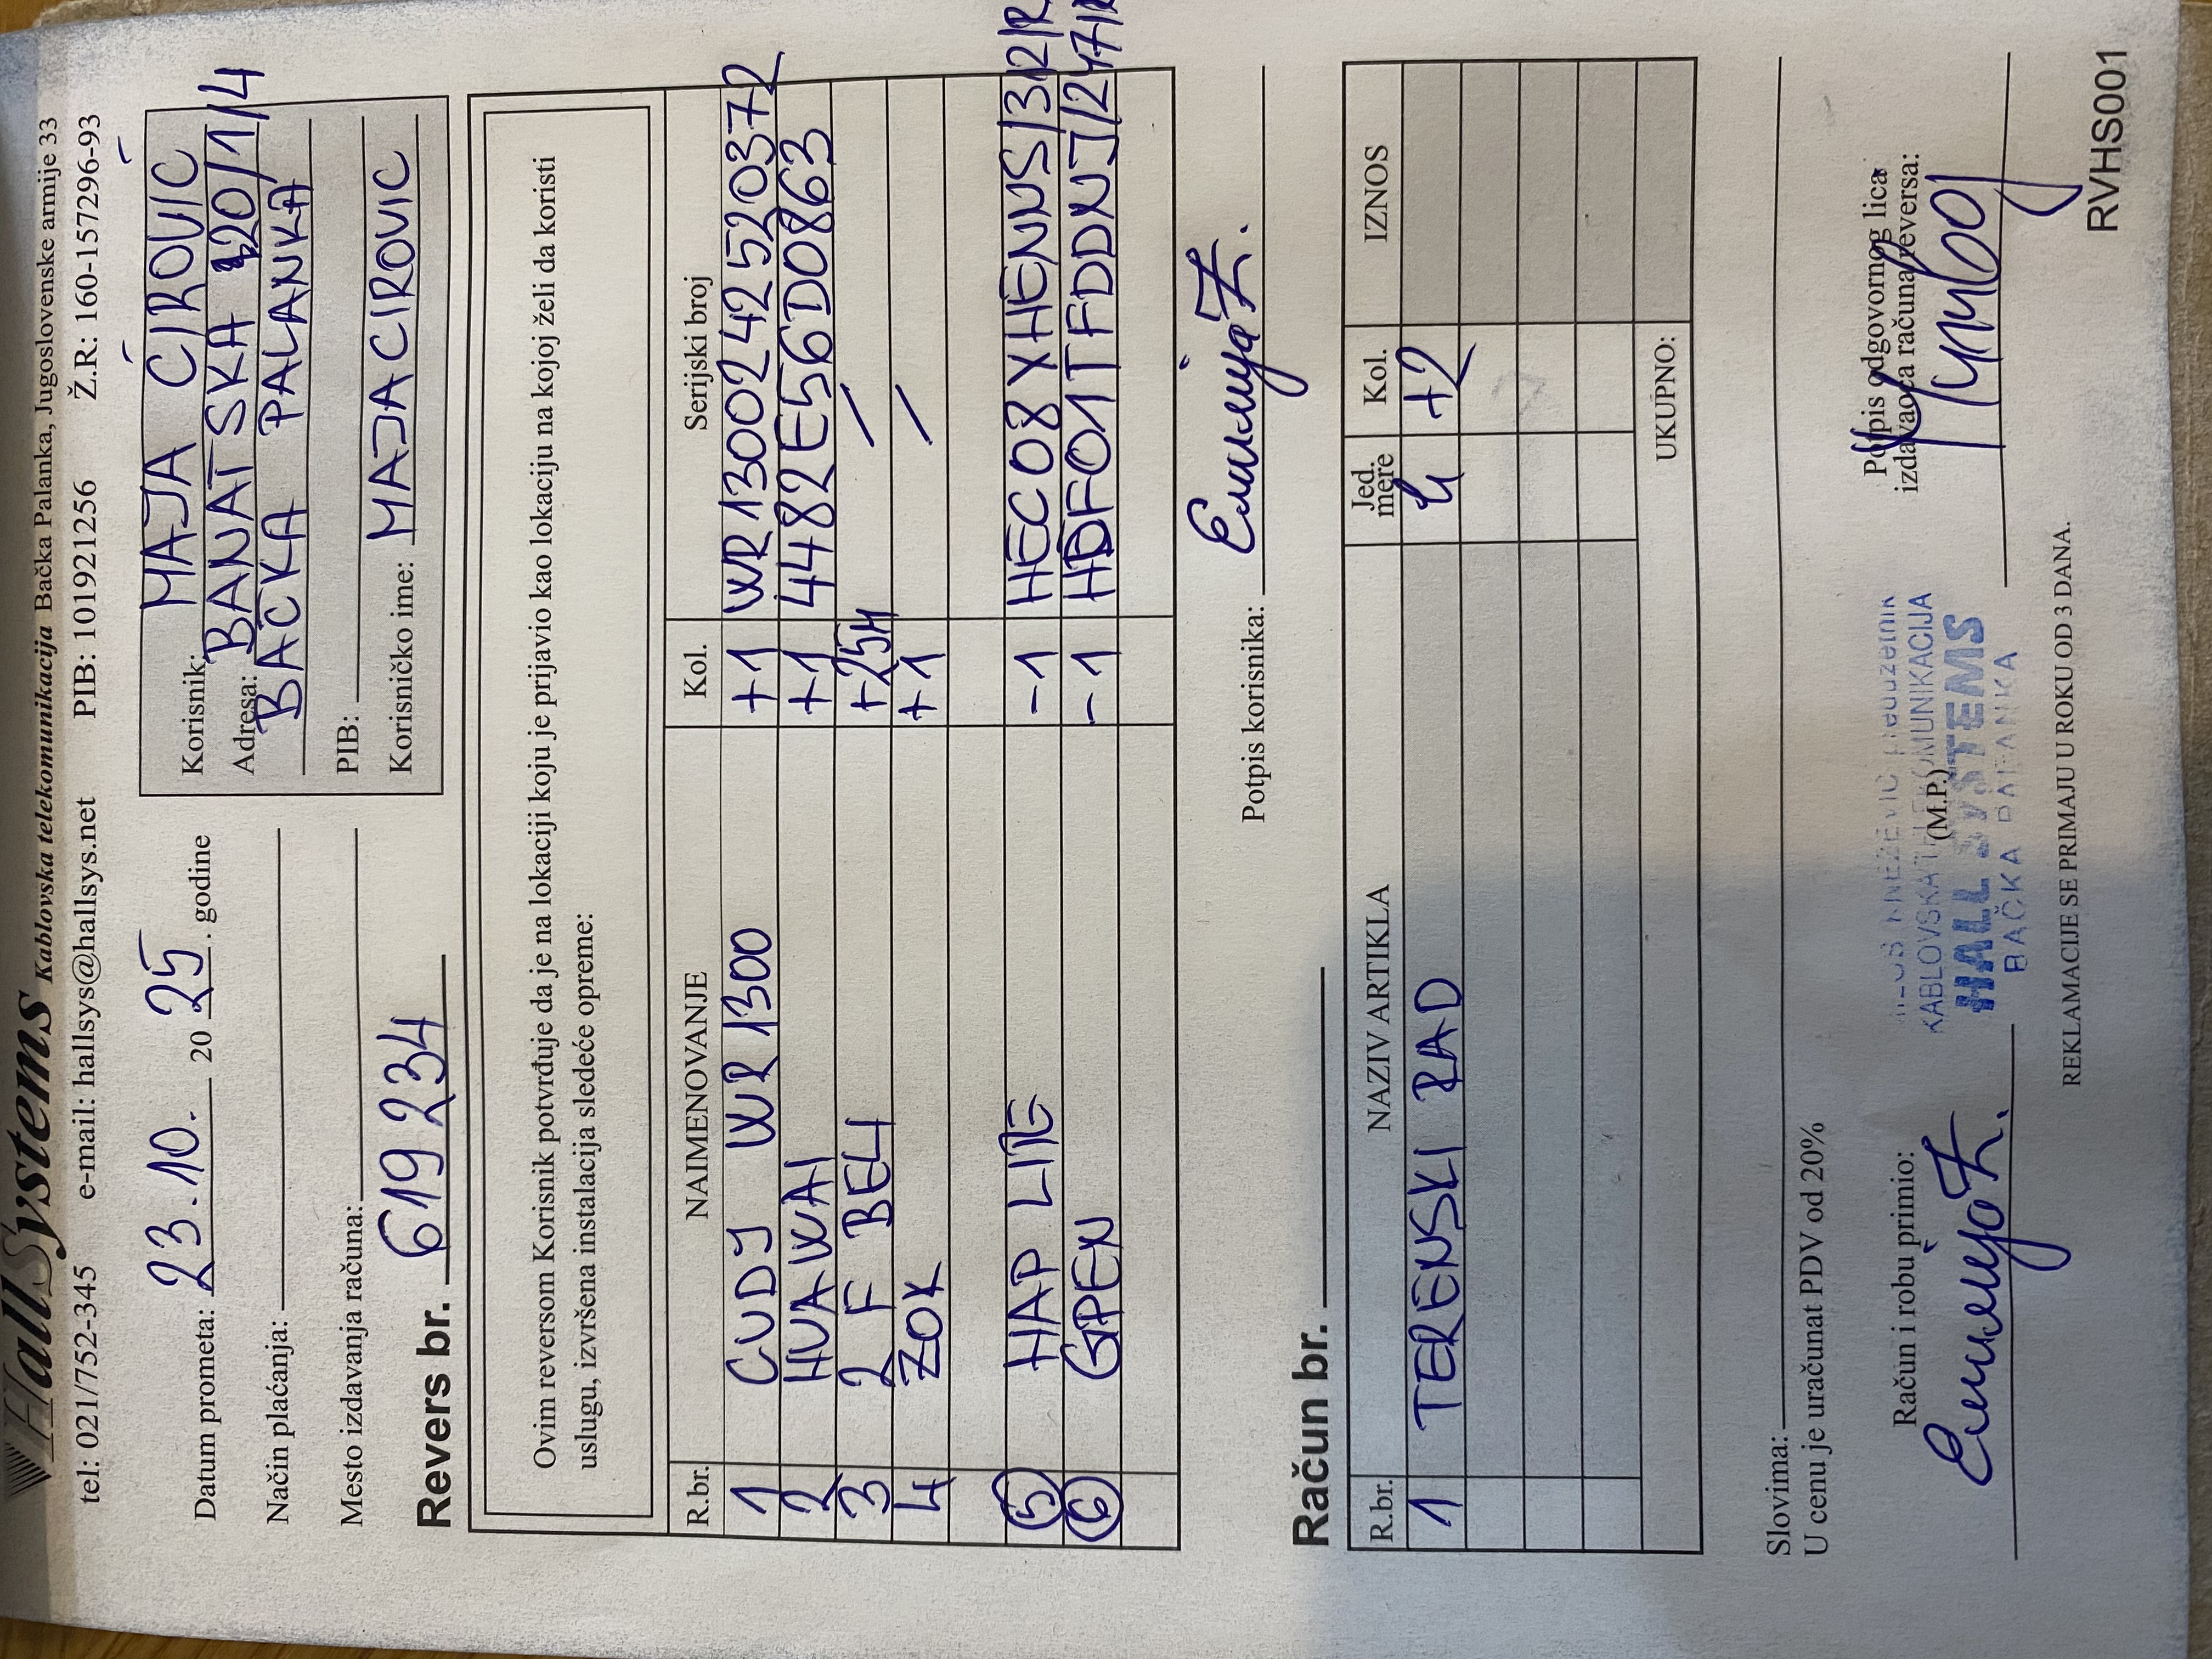 HallSystems Kablovska telekomunikacija Bačka Palanka, Jugoslovenske armije 33
tel: 021/752-345 e-mail: hallsys@hallsys.net PIB: 101921256 Ž.R: 160-1577296-93
Datum prometa: 23.10. 20 25. godine
Način plaćanja:
Mesto izdavanja računa:
Revers br. 619234
Korisnik: MAJA ĆIROVIĆ
Adresa: BANATSKA 120/1/4
BAČKA PALANKA
PIB:
Korisničko ime: MAJACIROVIC
Ovim reversom Korisnik potvrđuje da je na lokaciji koju je prijavio kao lokaciju na kojoj želi da koristi
uslugu, izvršena instalacija sledeće opreme:
R.br. NAIMENOVANJE Kol. Serijski broj
1 CUDY WR 1300 +1 WR1300242520372
2 HUAWAI +1 4482E56D0863
3 2 F BELI +25M /
4 ZOK +1 /
5 HAP LITE -1 HEC08XHENNS/312/R
6 GPEN -1 HDF01TFDDNJ/247/R
Potpis korisnika:
Račun br.
R.br. NAZIV ARTIKLA Jed. mere Kol. IZNOS
1 TERENSKI RAD h +2
UKUPNO:
Slovima:
U cenu je uračunat PDV od 20%
Račun i robu primio:
(M.P.)
KABLOVSKA TELEKOMUNIKACIJA
HALL SYSTEMS
BAČKA PALANKA
Potpis odgovornog lica
izdavaoca računa/reversa:
REKLAMACIJE SE PRIMAJU U ROKU OD 3 DANA.
RVHS001